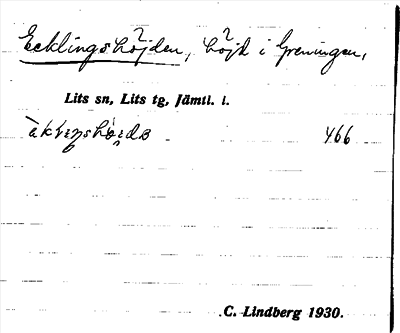 Ecklingshöjden, höjd i Greningen,
Lits sn, Lits tg, Jämtl. l.
466
C. Lindberg 1930.